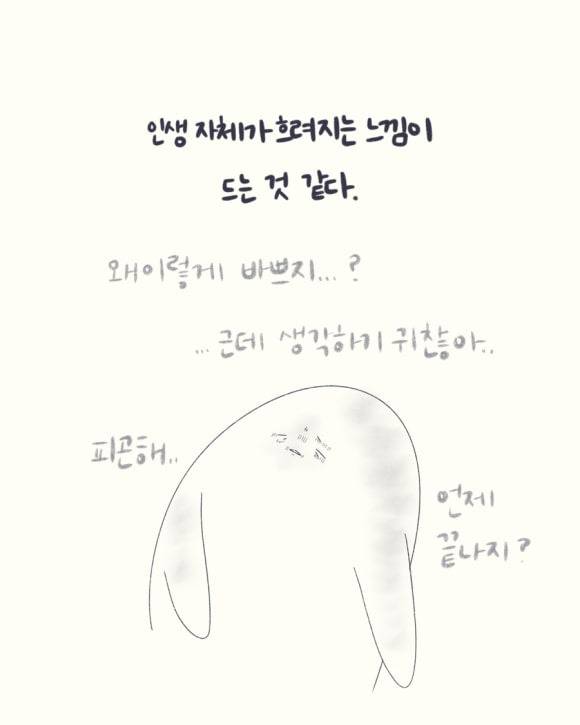 인생 자체가 흐려지는 느낌이
드는 것 같다.
왜이렇게 바쁘지...?
...근데 생각하기 귀찮아..
피곤해..
언제
끝나지?